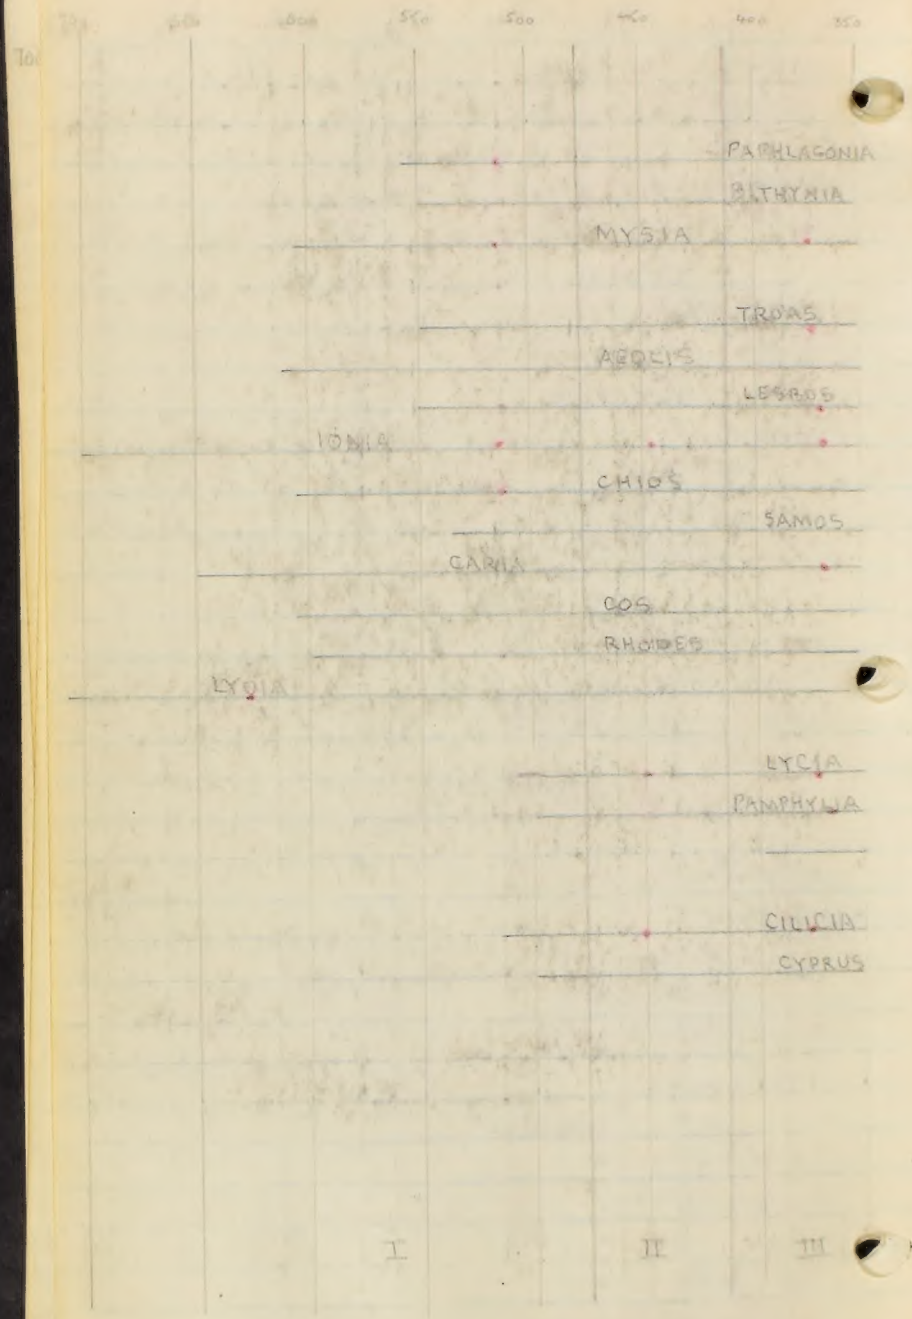 700 650 600 550 500 450 400 350
PAPHLAGONIA
BITHYNIA
MYSIA
TROAS
AEOLIS
LESBOS
IONIA
CHIOS
SAMOS
CARIA
COS
RHODES
LYDIA
LYCIA
PAMPHYLIA
CILICIA
CYPRUS
I II III